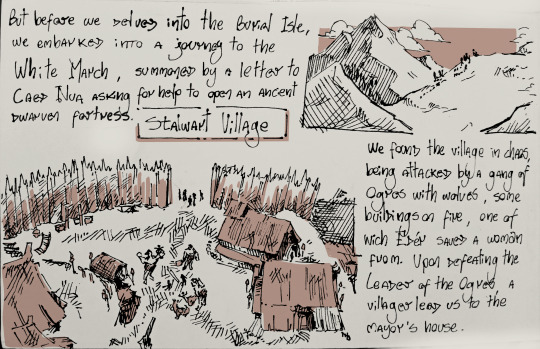 But before we delved into the Burial Isle,
we embarked into a journey to the
White March, summoned by a letter to
Caed Nua asking for help to open an ancient
dwarven fortress.
Stalwart Village
We found the village in chaos,
being attacked by a gang of
Ogres with wolves, some
buildings on fire, one of
wich Edér saved a woman
from. Upon defeating the
Leader of the Ogres a
villager lead us to the
mayor's house.